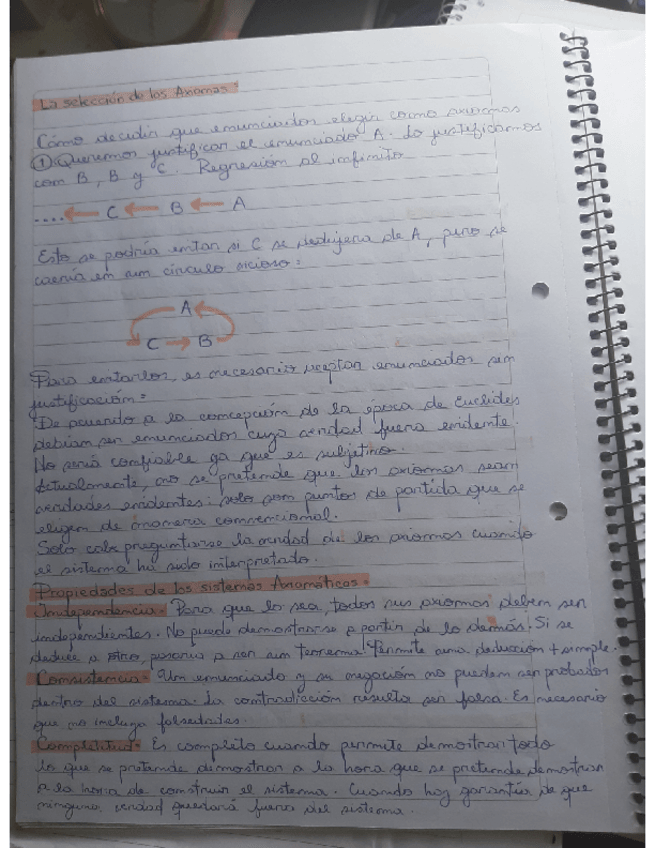 La selección de los Axiomas:
Cómo decidir que enunciados elegir como axiomas
① Queremos justificar el enunciado A. Lo justificamos
con B, B y C. Regresión al infinito
.... ← C ← B ← A
Esto se podría evitar si C se dedujera de A, pero se
caería en un círculo vicioso:
A
C → B
Para evitarlos, es necesario aceptar enunciados sin
justificación:
De acuerdo a la concepción de la época de Euclides
debían ser enunciados cuya verdad fuera evidente.
No sería confiable ya que es subjetivo.
Actualmente, no se pretende que los axiomas sean
verdades evidentes: solo son puntos de partida que se
eligen de manera convencional.
Solo cabe preguntarse la verdad de los axiomas cuando
el sistema ha sido interpretado.
Propiedades de los sistemas Axiomáticos:
Independencia: Para que lo sea, todos sus axiomas deben ser
independientes. No puede demostrarse a partir de lo demás. Si se
deduce a otro, pasaría a ser un teorema. Permite una deducción + simple.
Consistencia: Un enunciado y su negación no pueden ser probados
dentro del sistema. La contradicción resulta ser falsa. Es necesario
que no incluya falsedades.
Completitud: Es completo cuando permite demostrar todo
lo que se pretende demostrar a la hora que se pretende demostrar
a la hora de construir el sistema. Cuando hay garantía de que
ninguna verdad quedará fuera del sistema.